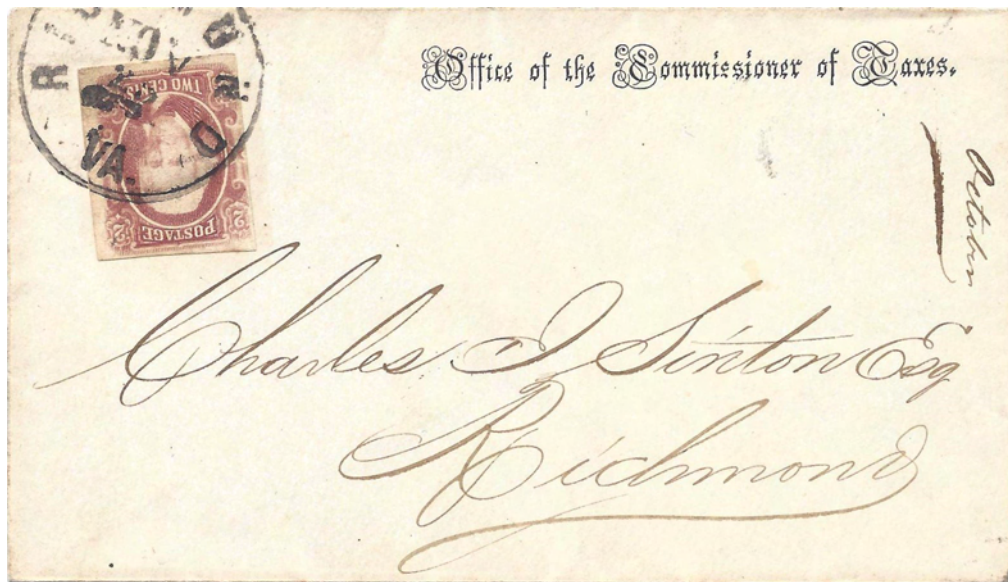 Office of the Commissioner of Taxes.
TWO CENTS
2 POSTAGE 2
VA.
October
Charles J Sinton Esq
Richmond